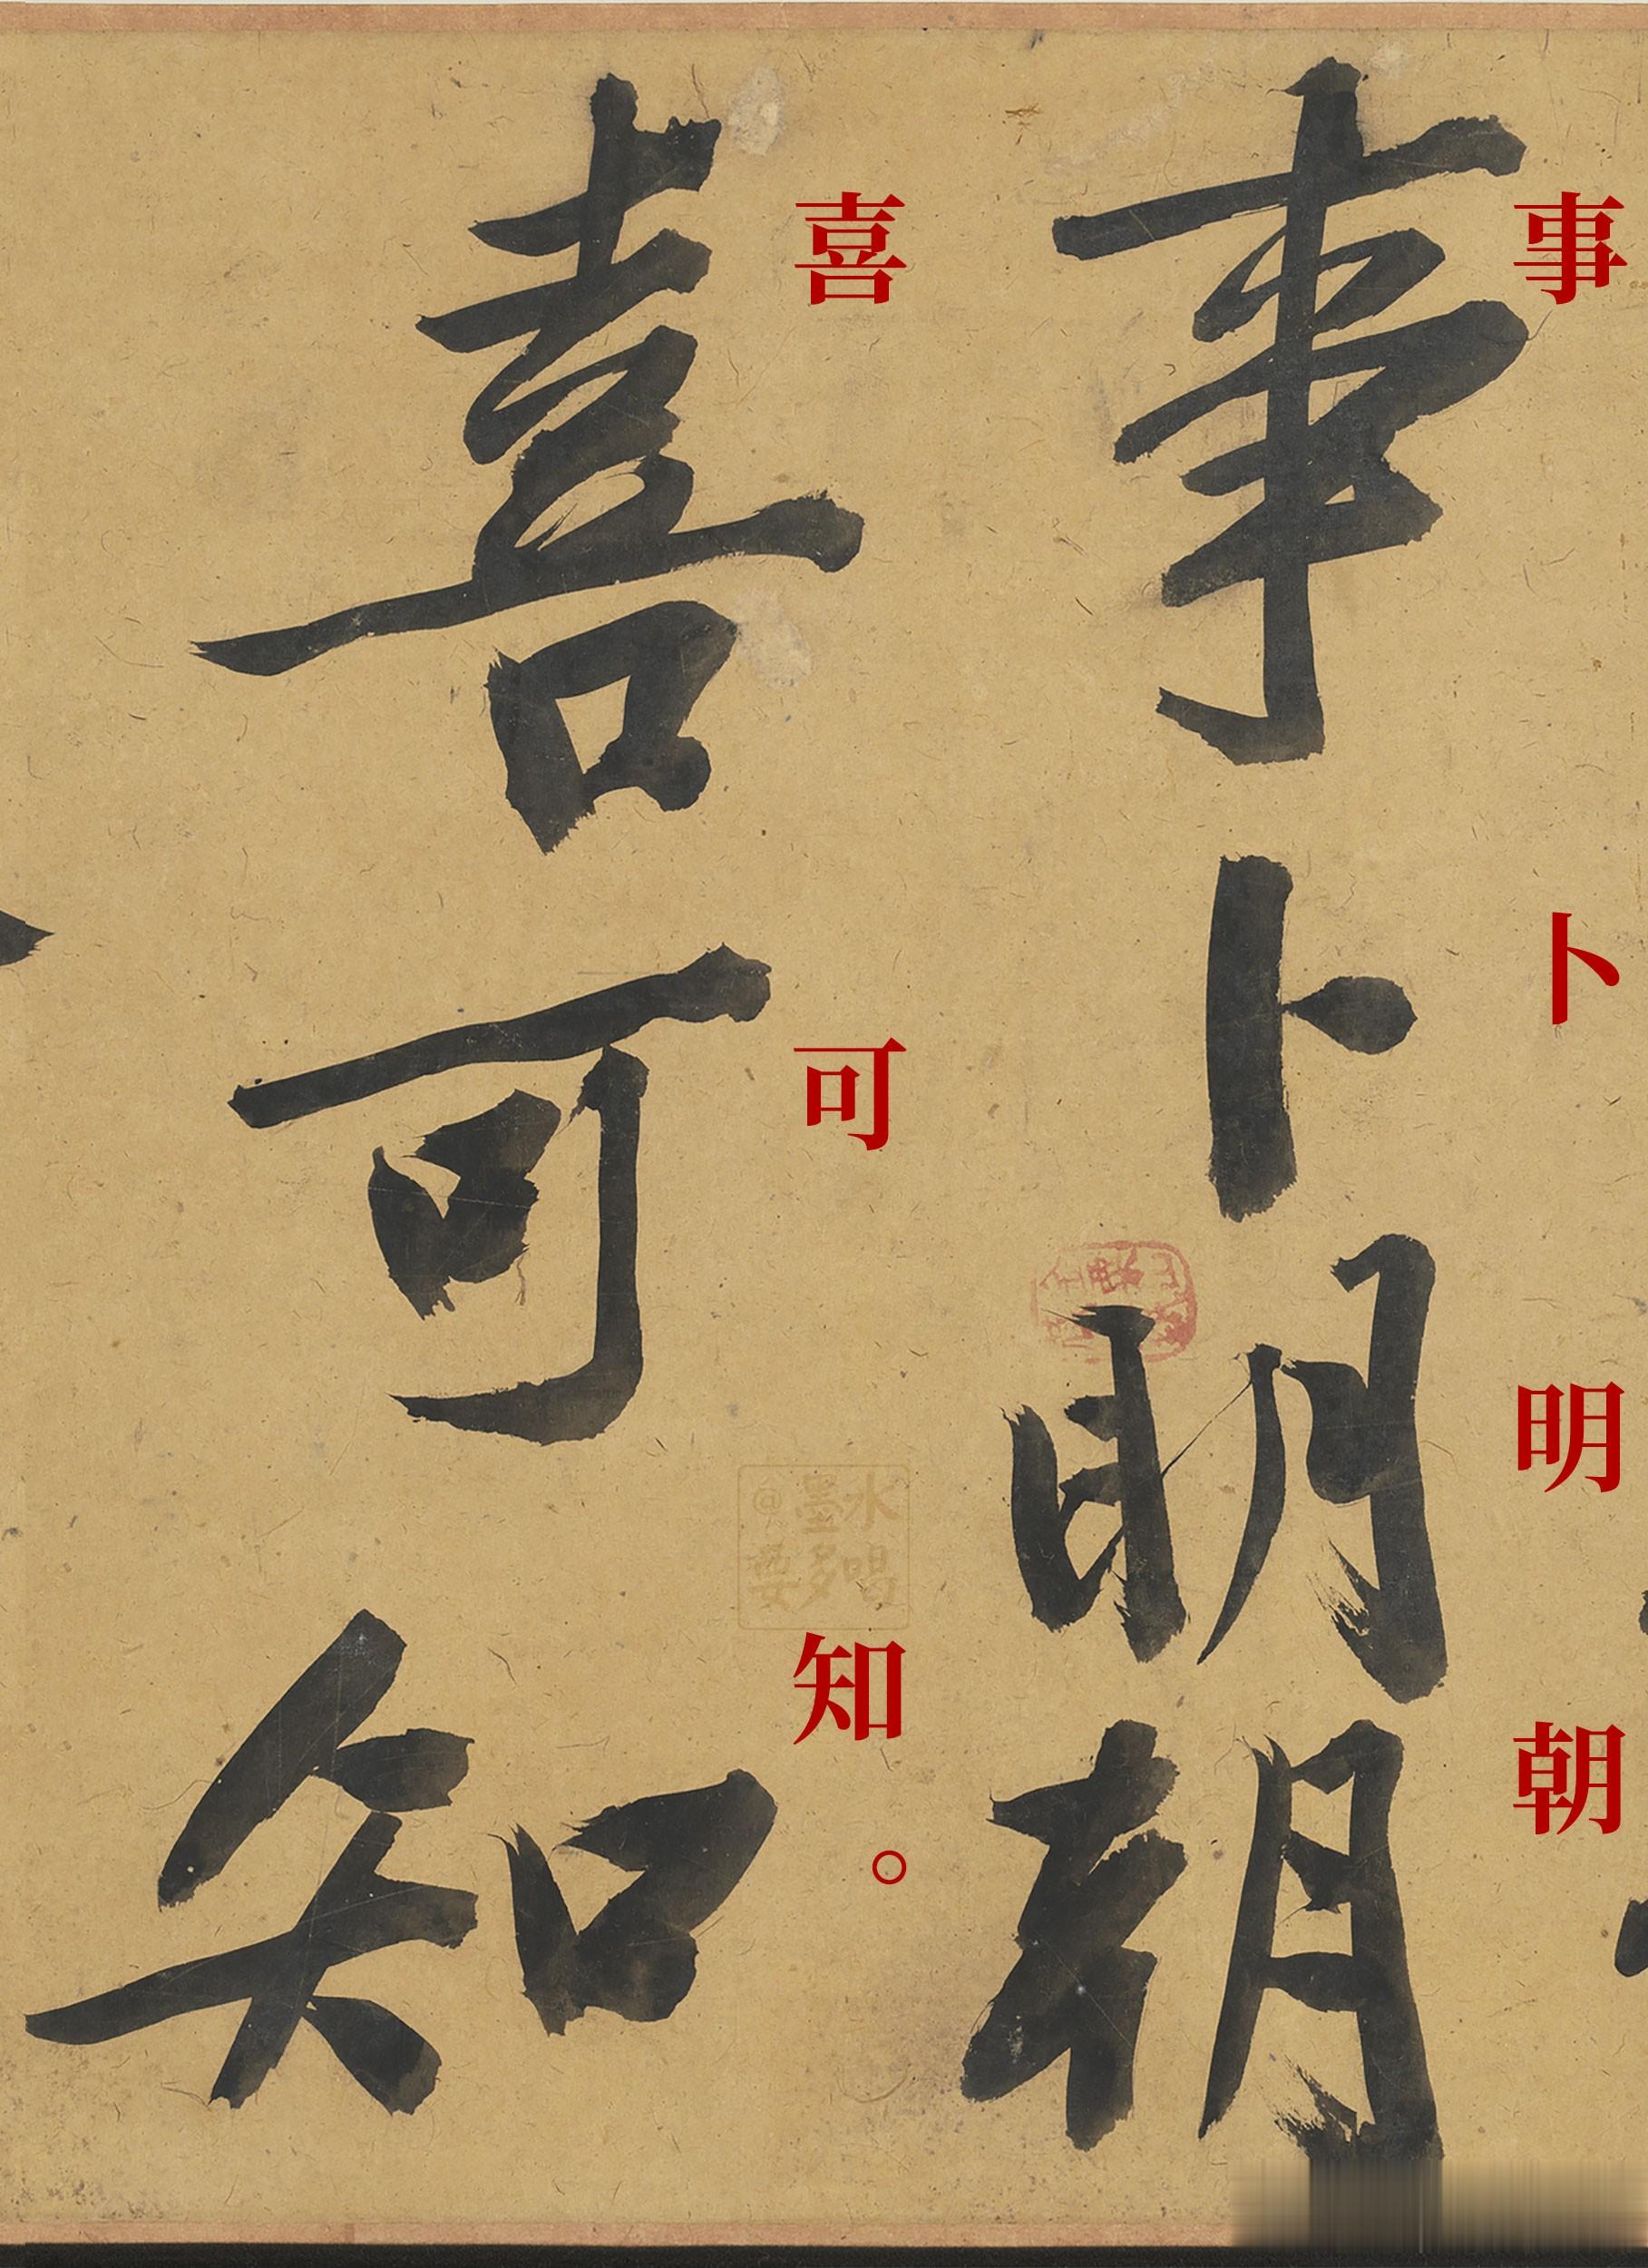 事卜明朝
事卜明朝
喜可知
喜可知。
@墨水
要多喝